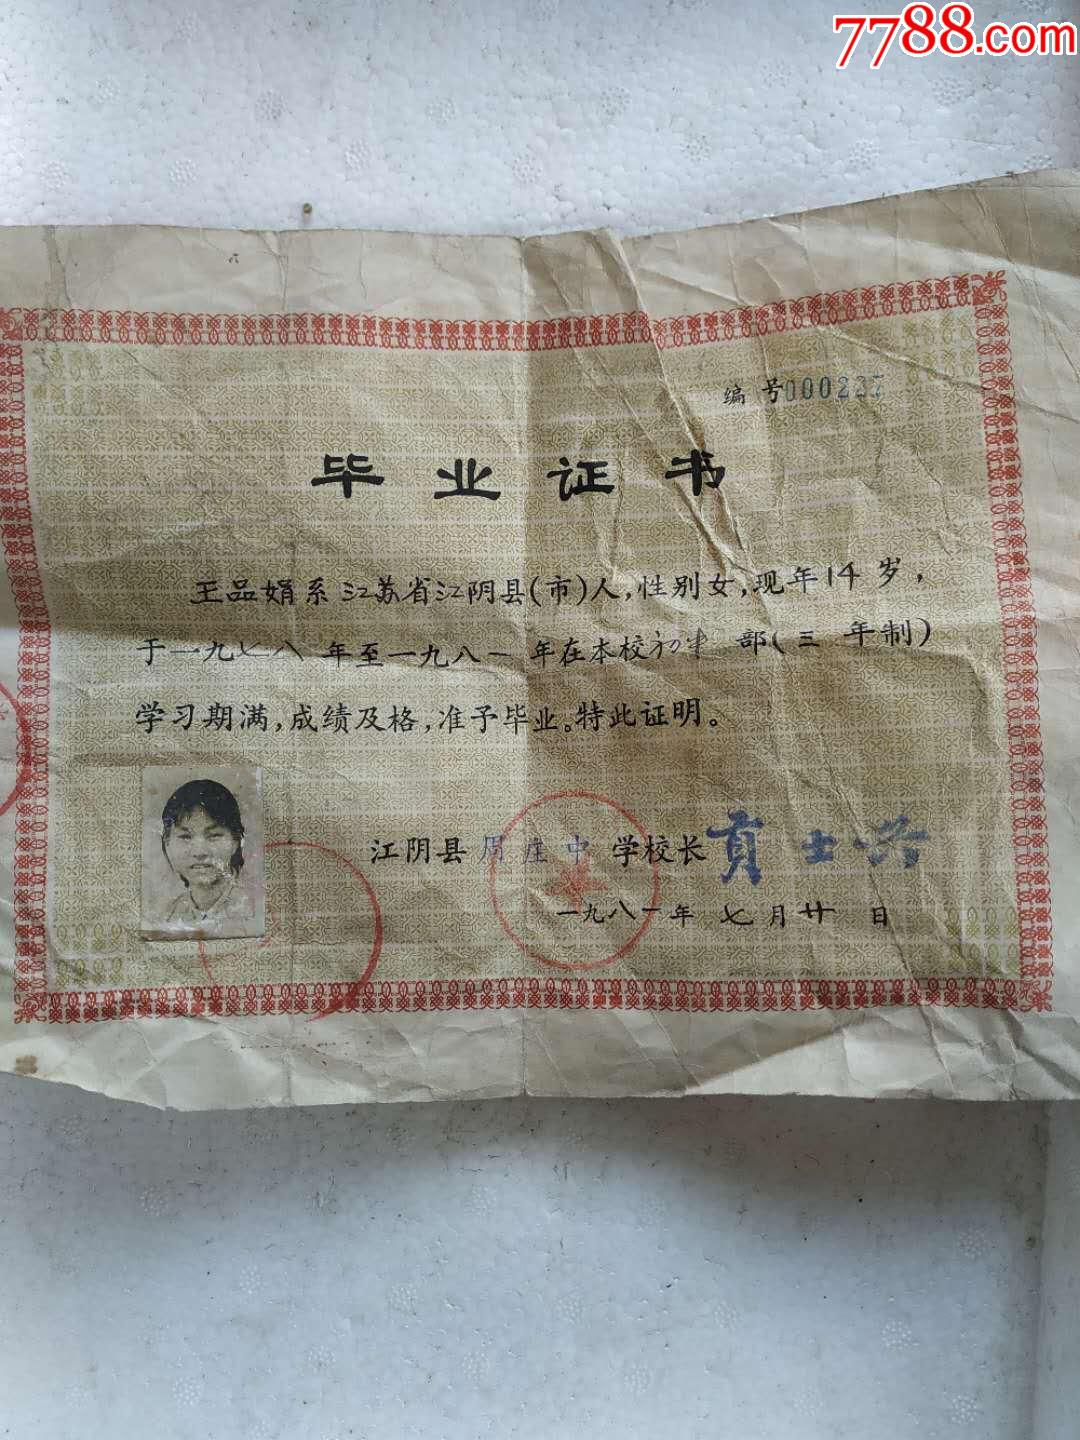 7788.com
编号000227
毕业证书
王品娟系江苏省江阴县(市)人,性别女,现年14岁,
于一九七八年至一九八一年在本校初中部(三年制)
学习期满,成绩及格,准予毕业。特此证明。
江阴县周庄中学校长贡士兴
一九八一年七月廿日